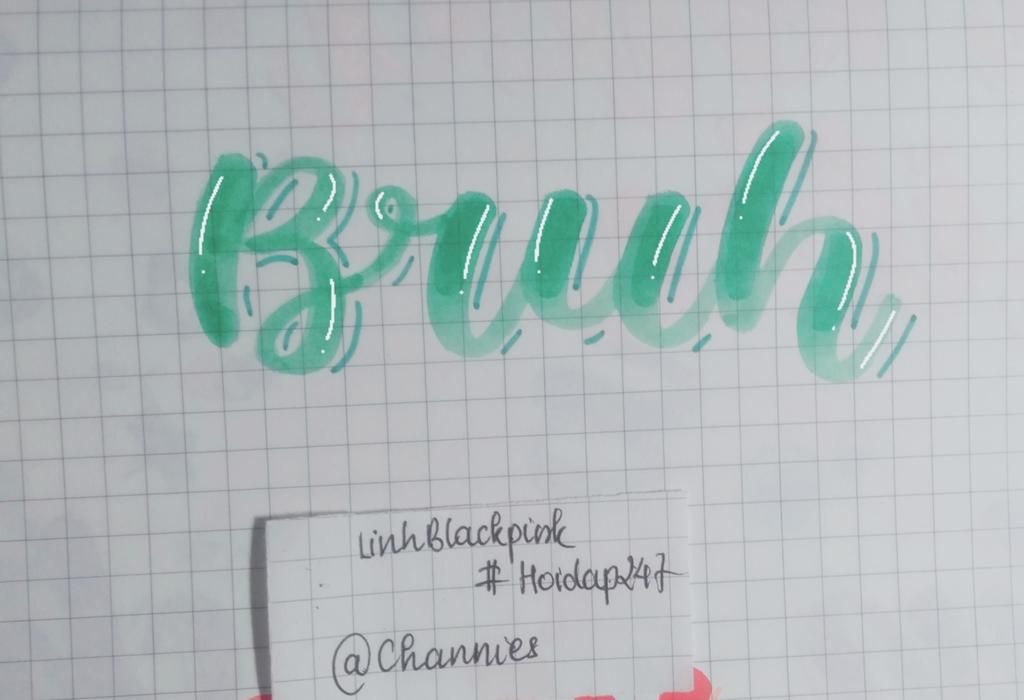 Bruh
LinhBlackpink
# Hoidap247
@Channies